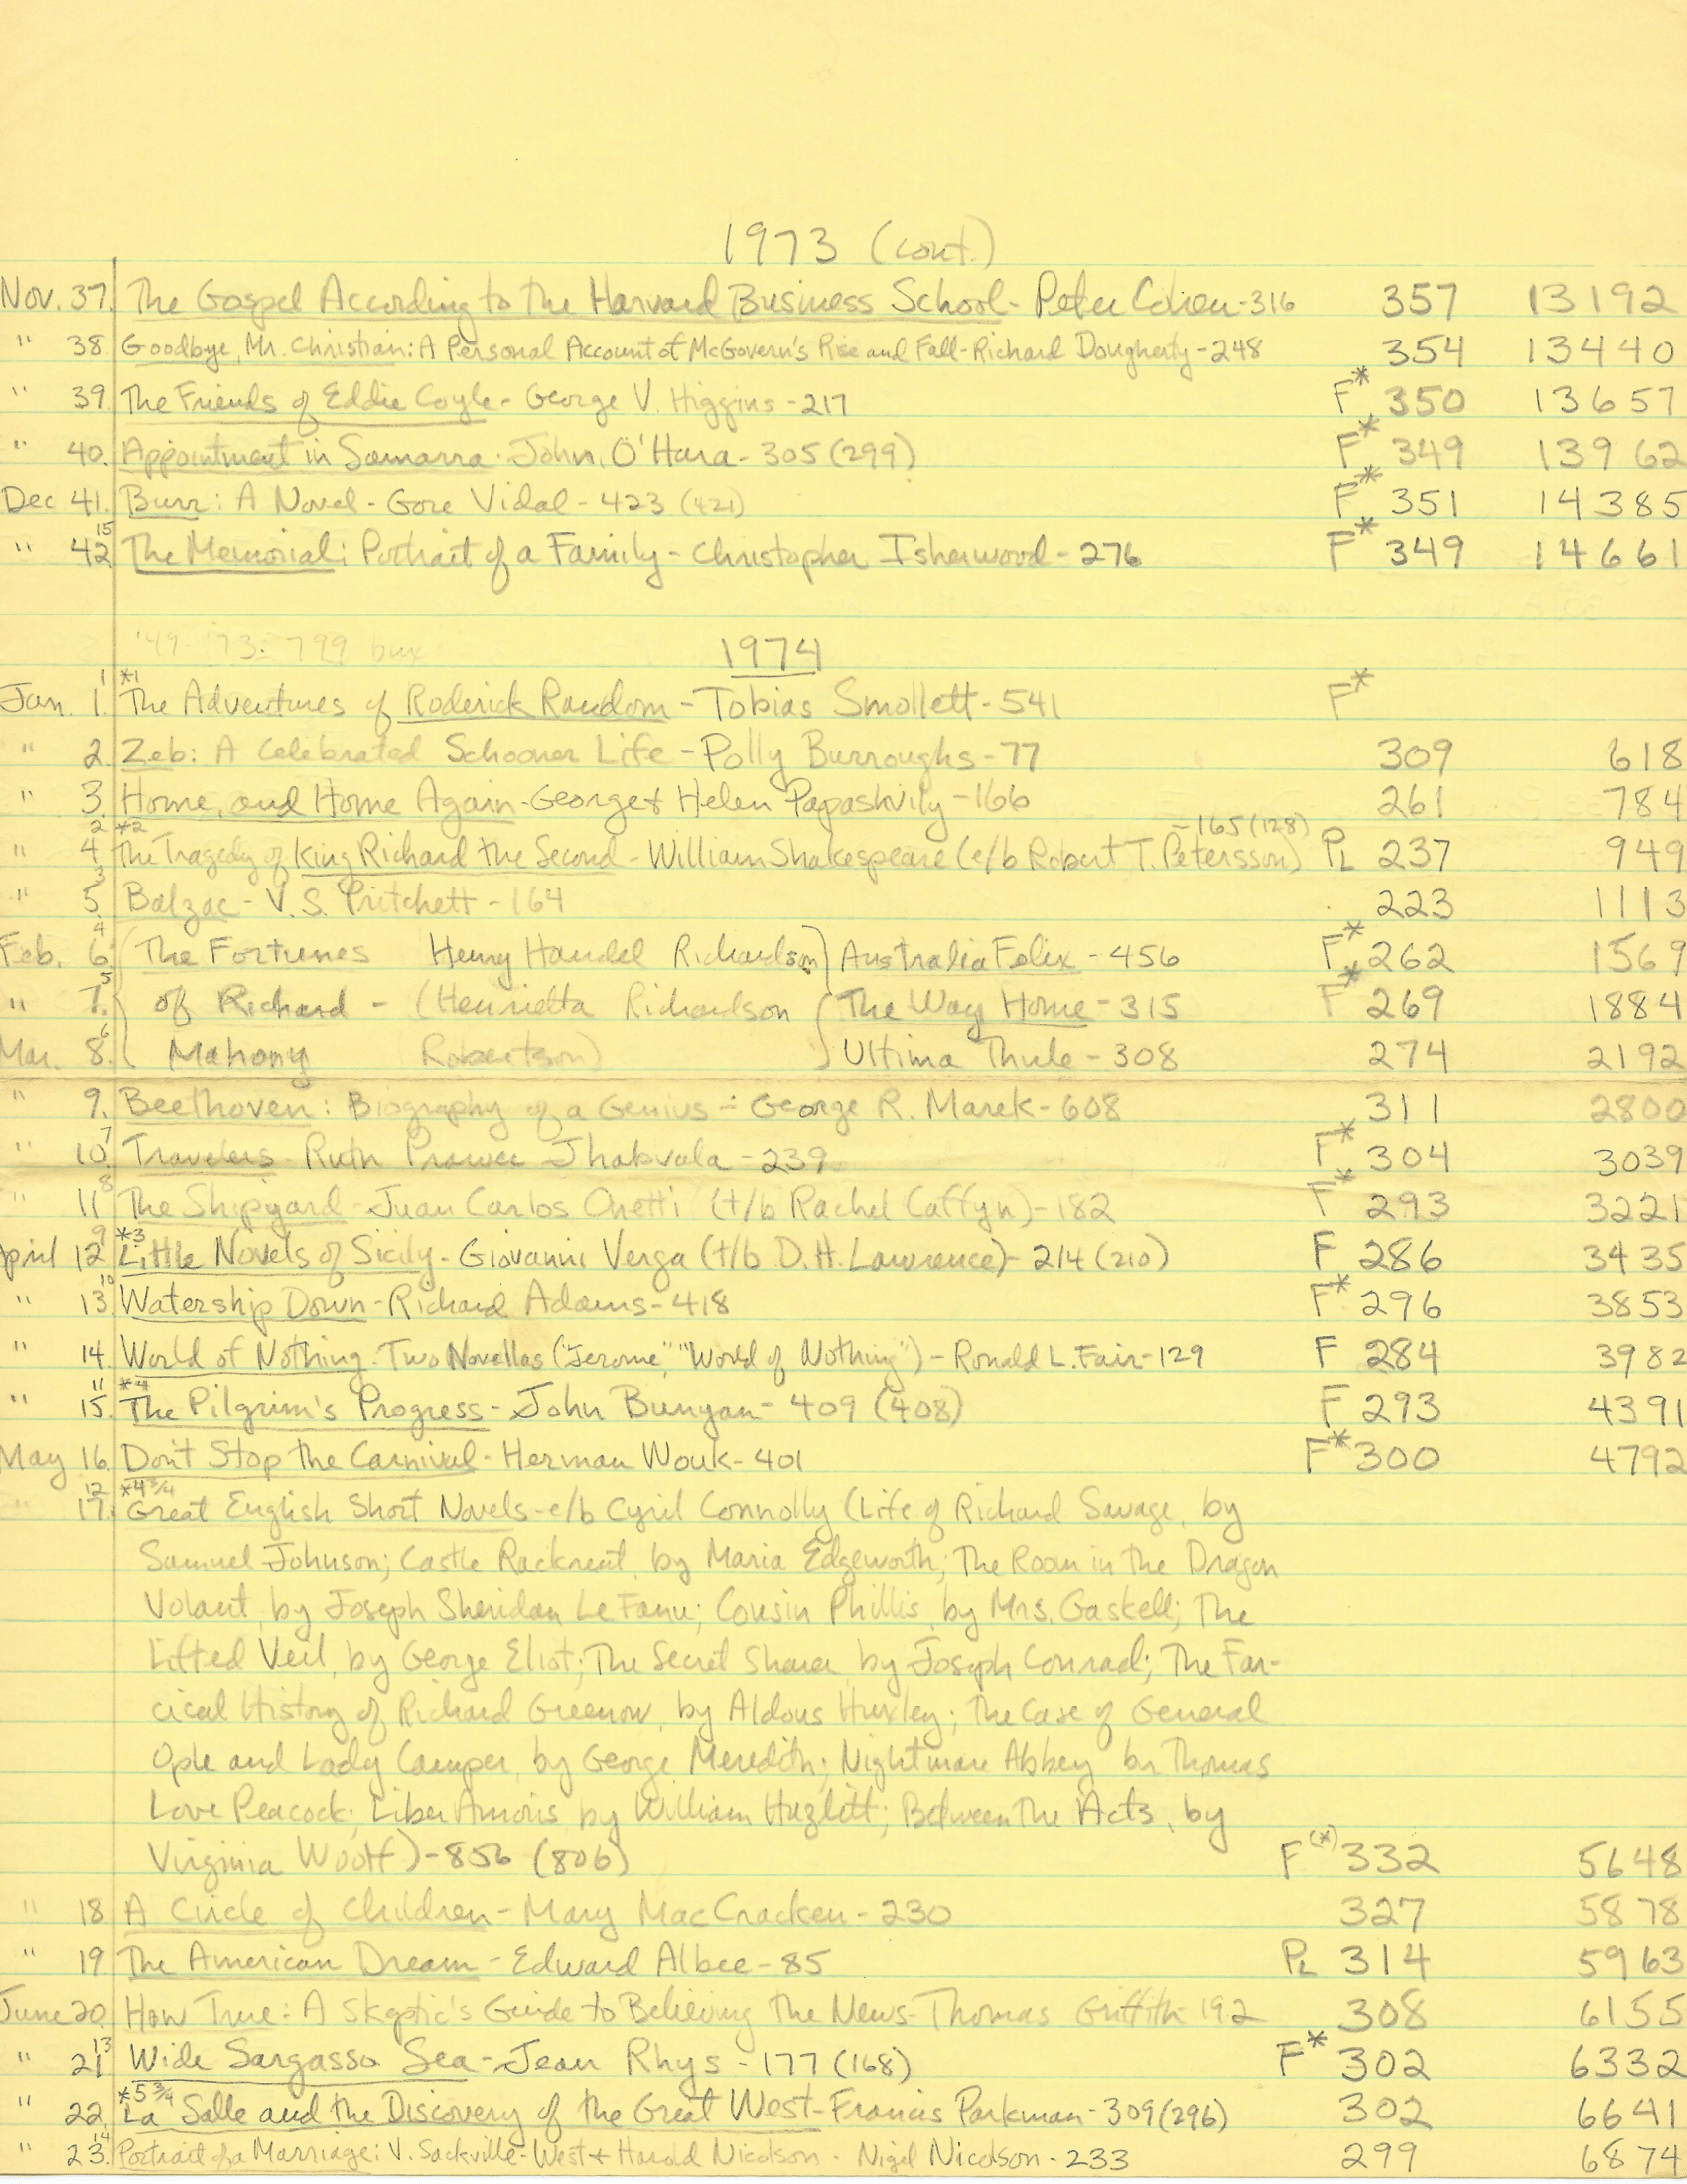 1973 (cont.)
Nov. 37. The Gospel According to the Harvard Business School - Peter Cohen - 316 357 13192
" 38 Goodbye, Mr. Christian: A Personal Account of McGovern's Rise and Fall - Richard Dougherty - 248 354 13440
" 39. The Friends of Eddie Coyle - George V. Higgins - 217 F* 350 13657
" 40. Appointment in Samarra - John O'Hara - 305 (299) F* 349 13962
Dec 41. Burr: A Novel - Gore Vidal - 423 (421) F* 351 14385
15
" 42 The Memorial: Portrait of a Family - Christopher Isherwood - 276 F* 349 14661
'49-'73: 799 bux
1974
1 *1
Jan. 1. The Adventures of Roderick Random - Tobias Smollett - 541 F*
" 2. Zeb: A Celebrated Schooner Life - Polly Burroughs - 77 309 618
" 3. Home, and Home Again - George + Helen Papashvily - 166 261 784
2 *2 - 165 (128)
" 4. The Tragedy of King Richard the Second - William Shakespeare (e/b Robert T. Petersson) PL 237 949
3
" 5. Balzac - V.S. Pritchett - 164 223 1113
4
Feb. 6. (The Fortunes Henry Handel Richardson) Australia Felix - 456 F* 262 1569
5
" 7. of Richard - (Henrietta Richardson The Way Home - 315 F* 269 1884
6
Mar. 8. Mahony Robertson) Ultima Thule - 308 274 2192
" 9. Beethoven: Biography of a Genius - George R. Marek - 608 311 2800
7
" 10. Travelers - Ruth Prawer Jhabvala - 239 F* 304 3039
8
" 11 The Shipyard - Juan Carlos Onetti (t/b Rachel Caffyn) - 182 F* 293 3221
9 *3
April 12 Little Novels of Sicily - Giovanni Verga (t/b D.H. Lawrence) - 214 (210) F 286 3435
10
" 13. Watership Down - Richard Adams - 418 F* 296 3853
" 14. World of Nothing: Two Novellas ("Jerome," "World of Nothing") - Ronald L. Fair - 129 F 284 3982
11 *4
" 15. The Pilgrim's Progress - John Bunyan - 409 (408) F 293 4391
May 16. Don't Stop the Carnival - Herman Wouk - 401 F* 300 4792
12 *4 3/4
" 17. Great English Short Novels - e/b Cyril Connolly (Life of Richard Savage, by
Samuel Johnson; Castle Rackrent, by Maria Edgeworth; The Room in the Dragon
Volant, by Joseph Sheridan Le Fanu; Cousin Phillis, by Mrs. Gaskell; The
Lifted Veil, by George Eliot; The Secret Sharer, by Joseph Conrad; The Far-
cical History of Richard Greenow, by Aldous Huxley; The Case of General
Ople and Lady Camper, by George Meredith; Nightmare Abbey by Thomas
Love Peacock; Liber Amoris, by William Hazlitt; Between the Acts, by
Virginia Woolf) - 856 (806) F(*) 332 5648
" 18 A Circle of Children - Mary MacCracken - 230 327 5878
" 19 The American Dream - Edward Albee - 85 PL 314 5963
June 20. How True: A Skeptic's Guide to Believing the News - Thomas Griffith - 192 308 6155
13
" 21 Wide Sargasso Sea - Jean Rhys - 177 (168) F* 302 6332
*5 3/4
" 22. La Salle and the Discovery of the Great West - Francis Parkman - 309 (296) 302 6641
14
" 23. Portrait of a Marriage: V. Sackville-West + Harold Nicolson - Nigel Nicolson - 233 299 6874